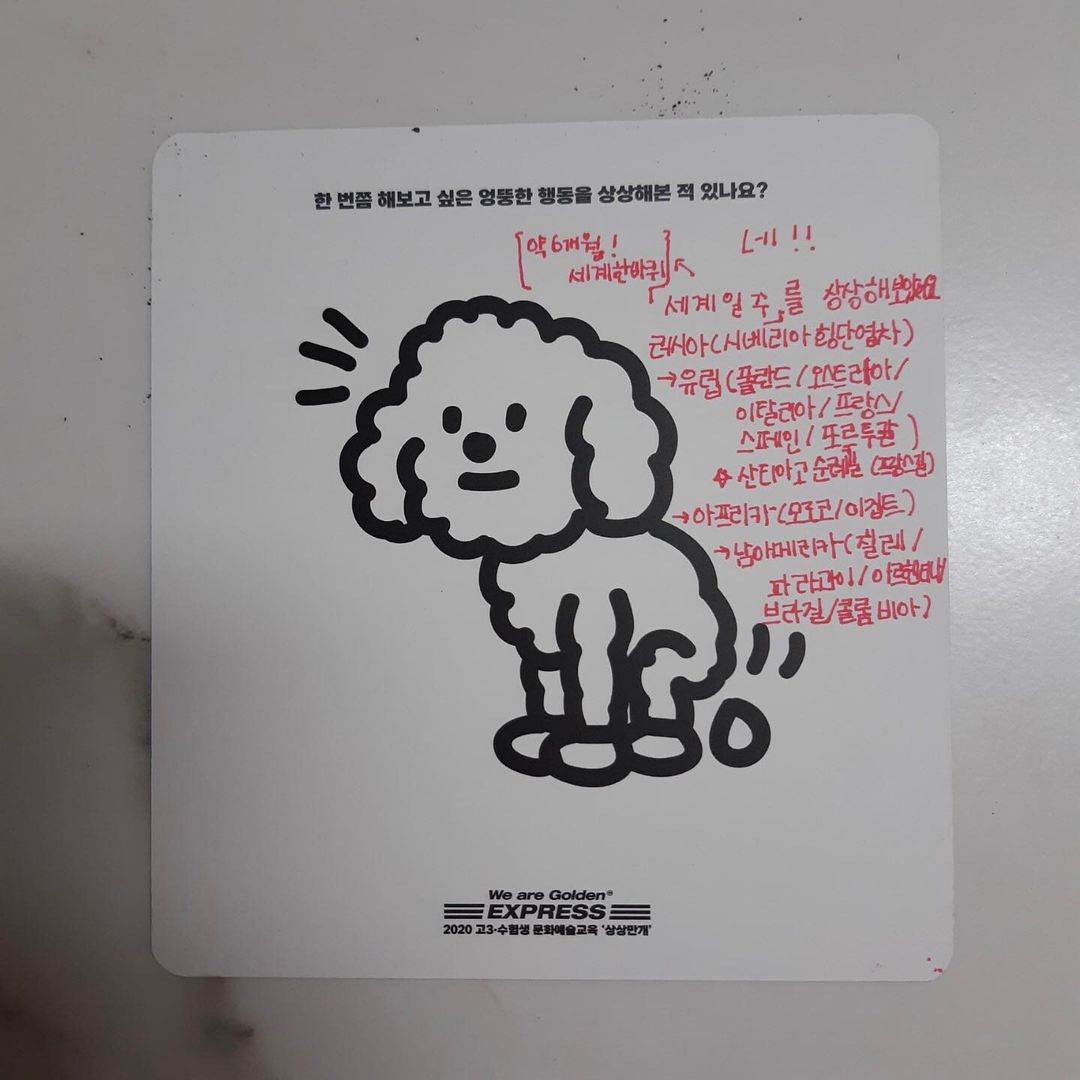 한 번쯤 해보고 싶은 엉뚱한 행동을 상상해본 적 있나요?
네!!
[약 6개월!
세계한바퀴]
세계일주를 상상해보았어요
러시아(시베리아 횡단열차)
→유럽(폴란드/오스트리아/
이탈리아/프랑스/
스페인/포르투갈)
산티아고 순례길 (프랑스길)
→아프리카(모로코/이집트)
→남아메리카(칠레/
파라과이/아르헨티나
브라질/콜롬비아)
We are Golden®
EXPRESS
2020 고3·수험생 문화예술교육 '상상만개'